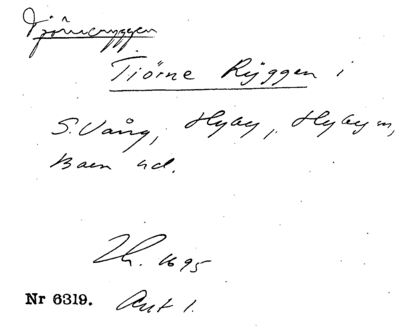 Tjörneryggen
Tiörne Ryggen i
S. Vång, Hyby, Hyby sn,
Bara hd.
Lh. 1695
Nr 6319. Akt 1.